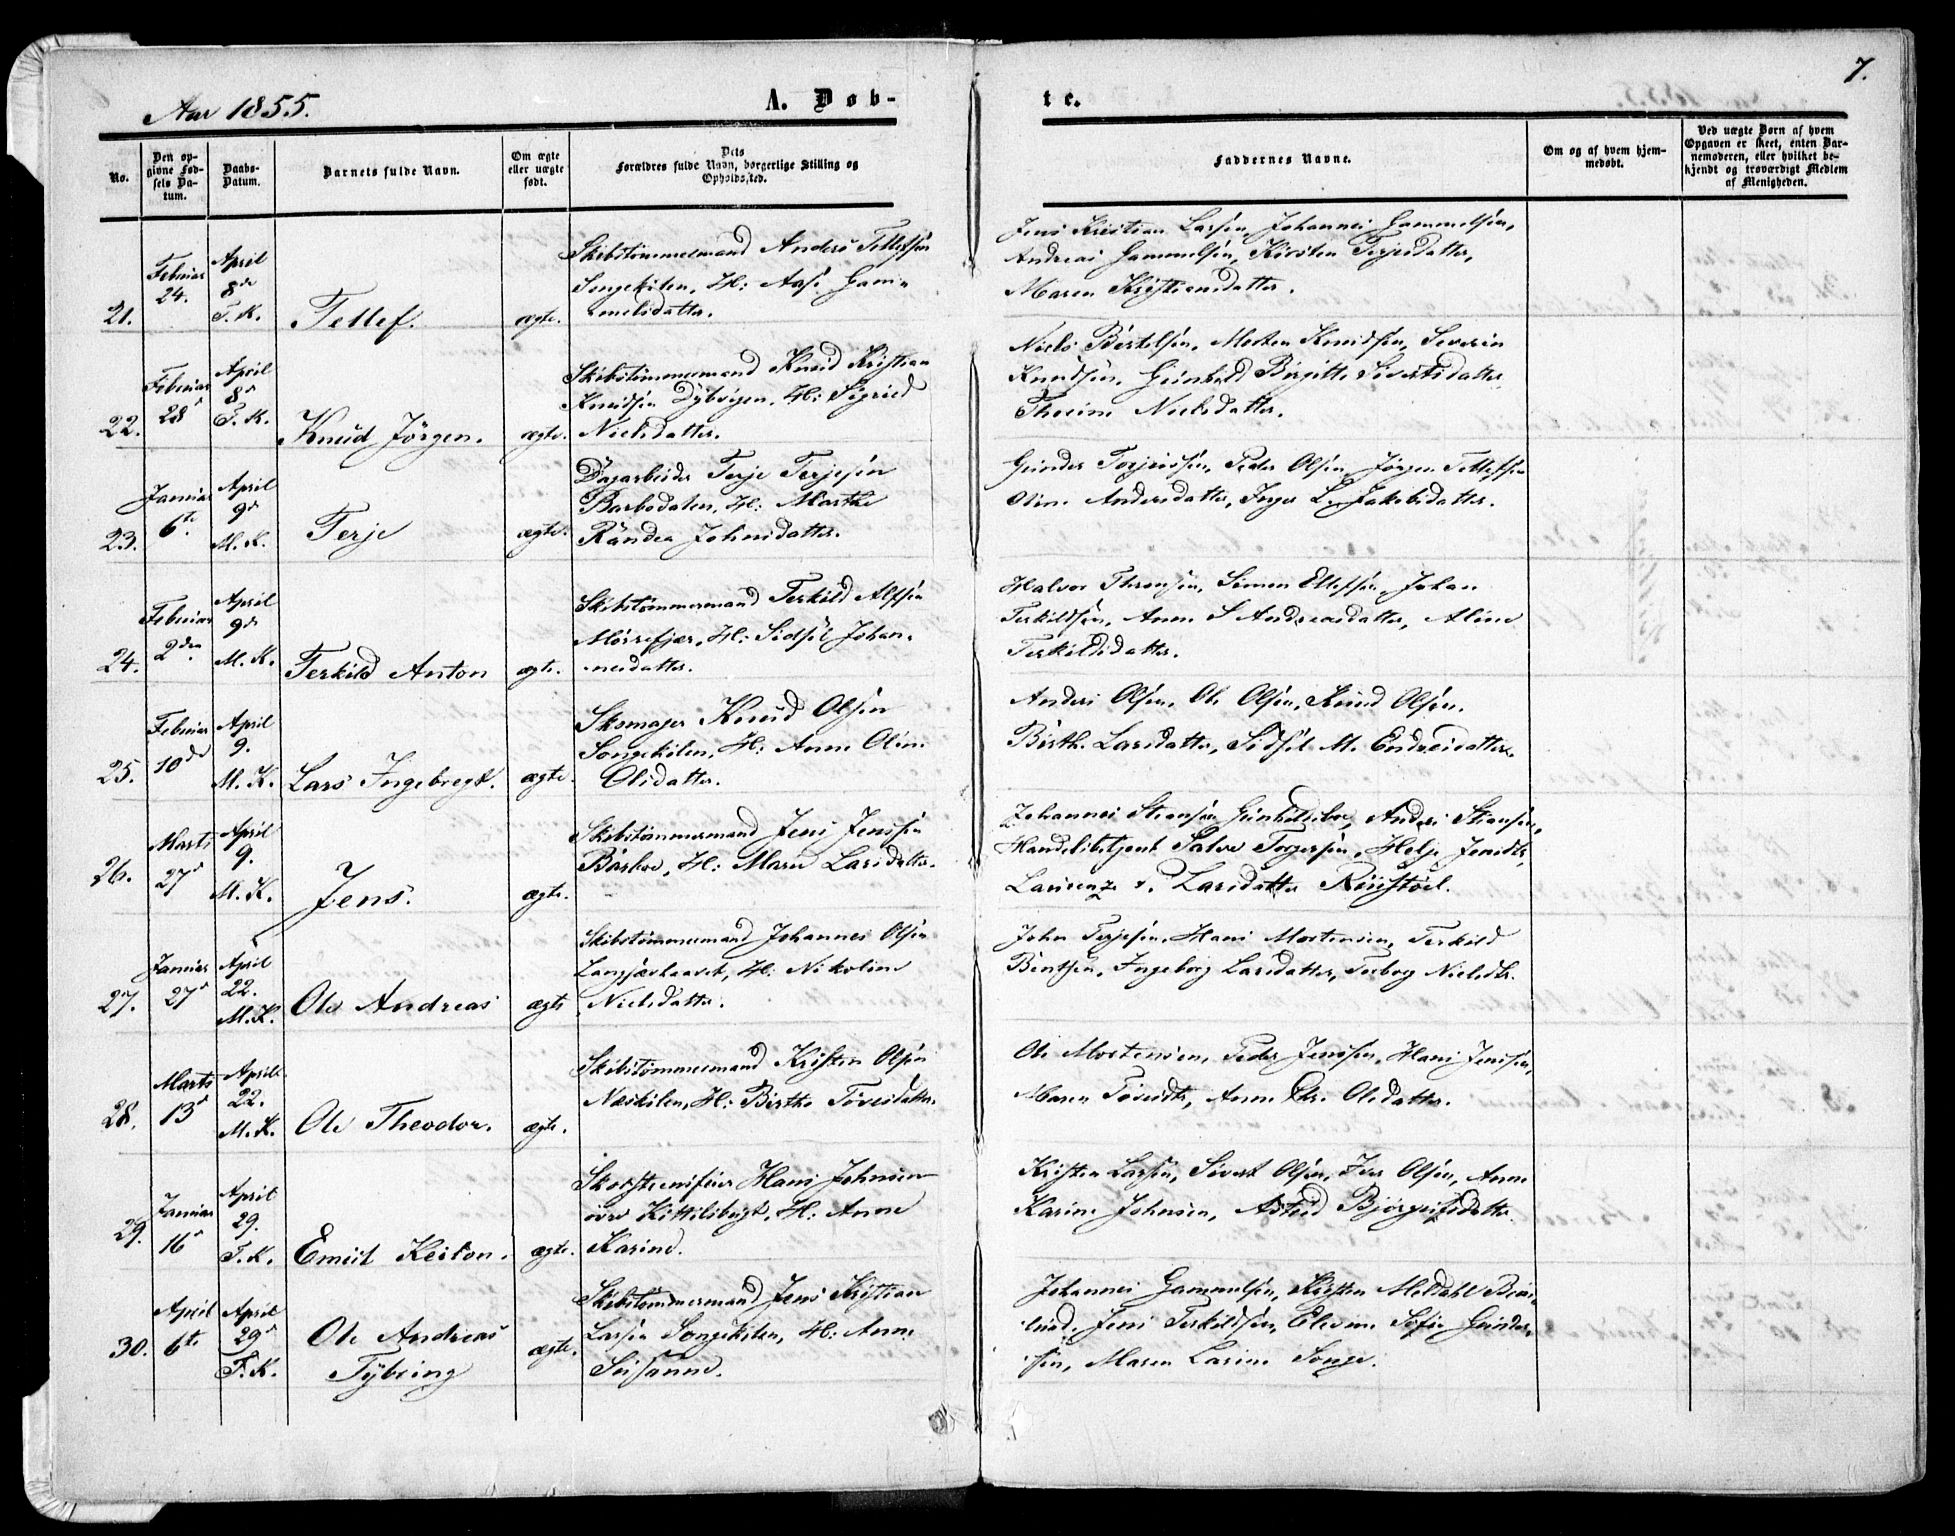 Aar 1855.
A. Døb-
te.
7.
No.
Den opgivne Fødsels Datum.
Daabs-Datum.
Barnets fulde Navn.
Om ægte eller uægte født.
Dets Forældres fulde Navn, borgerlige Stilling og Opholdssted.
Faddernes Navne.
Om og af hvem hjemmedøbt.
Ved uægte Børn af hvem Opgaven er skeet, enten Barnemoderen, eller hvilket bekjendt og troværdigt Medlem af Menigheden.
21.
Februar 24.
April 8de T. K.
Tellef.
ægte.
Skibstømmermand Anders Tellefsen
Songekilen, H: Aase Gam-
melsdatter.
Jens Kristian Larsen, Johannes Gammelsen,
Andreas Gammelsen, Kirsten Terjesdatter,
Maren Kristiansdatter.
22.
Februar 28d
April 8d T. K.
Knud Jörgen.
ægte.
Skibstømmermand Knud Kristian
Knudsen Dybvigen, H: Sigried
Nielsdatter.
Niels Bertelsen, Morten Knudsen, Severin
Knudsen, Gunhild Birgitte Sivertsdatter
Nielsdatter.
23.
Januar 6te.
April 9d M. K.
Terje
ægte.
Dagarbeider Terje Terjesen
Barbodalen, H: Marthe
Randea Johnsdatter.
Gunder Torjussen, Peder Olsen, Jörgen Tellefsen
Oline Andersdatter, Inger L. Jakobsdatter.
24.
Februar 2den.
April 9de M. K.
Terkild Anton
ægte.
Skibstømmermand Terkild Alfsen
Mörrefjær, H: Sidsel Johan-
nesdatter.
Halvor Thronsen, Simon Ellefsen, Johan
Terkildsen, Anne S Andreasdatter, Aline
Terkildsdatter.
25.
Februar 10de
April 9. M. K.
Lars Ingebregt.
ægte.
Skomager Knud Olsen
Songekilen, H: Anne Oline
Olsdatter.
Anders Olsen, Ole Olsen, Knud Olsen.
Birthe Larsdatter, Sidsel M. Endresdatter.
26.
Marts 27d
April 9. M. K.
Jens.
ægte.
Skibstømmermand Jens Jenssen
Barboe, H: Maren Larsdatter.
Johannes Steansen Anders Steansen,
Handelsbetjent Salve Torgersen, Helje Jensdtr
Larsdatter
27.
Januar 27d
April 22. M. K.
Ole Andreas
ægte
Skibstømmermand Johannes Olsen
Langsævhaavet, H: Nikoline
Nielsdatter.
John Terjesen, Hans Mortensen, Terkild
Bentsen, Ingeborg Larsdatter, Torborg Nielsdtr.
28.
Marts 13d
April 22. M. K.
Ole Theodor.
ægte.
Skibstømmermand Kristen Olsen
Neskilen, H: Birthe Tovesdatter.
Ole Mortensen, Peder Jenssen, Hans Jenssen,
Maren Tovesdtr, Anne Chr. Olsdatter.
29.
Januar 16d
April 29. T. K.
Emiil Keiton.
ægte.
Skorsteensfeier Hans Johnsen
övre Kittilsbugt, H: Anne
Karine.
Kristen Larsen, Sivert Olsen, Iver Olsen, Anne
Karine Johnsen, Astrid Björgufsdatter.
30.
April 6te
April 29d T. K.
Ole Andreas
Tybring
ægte.
Skibstømmermand Jens Kristian
Larsen Songekilen, H: Anne
Susanne.
Johannes Gammelsen, Kirsten Meldahl
Jens Terkildsen, Elevine Sofie Gunder-
sen, Maren Larine Songe.